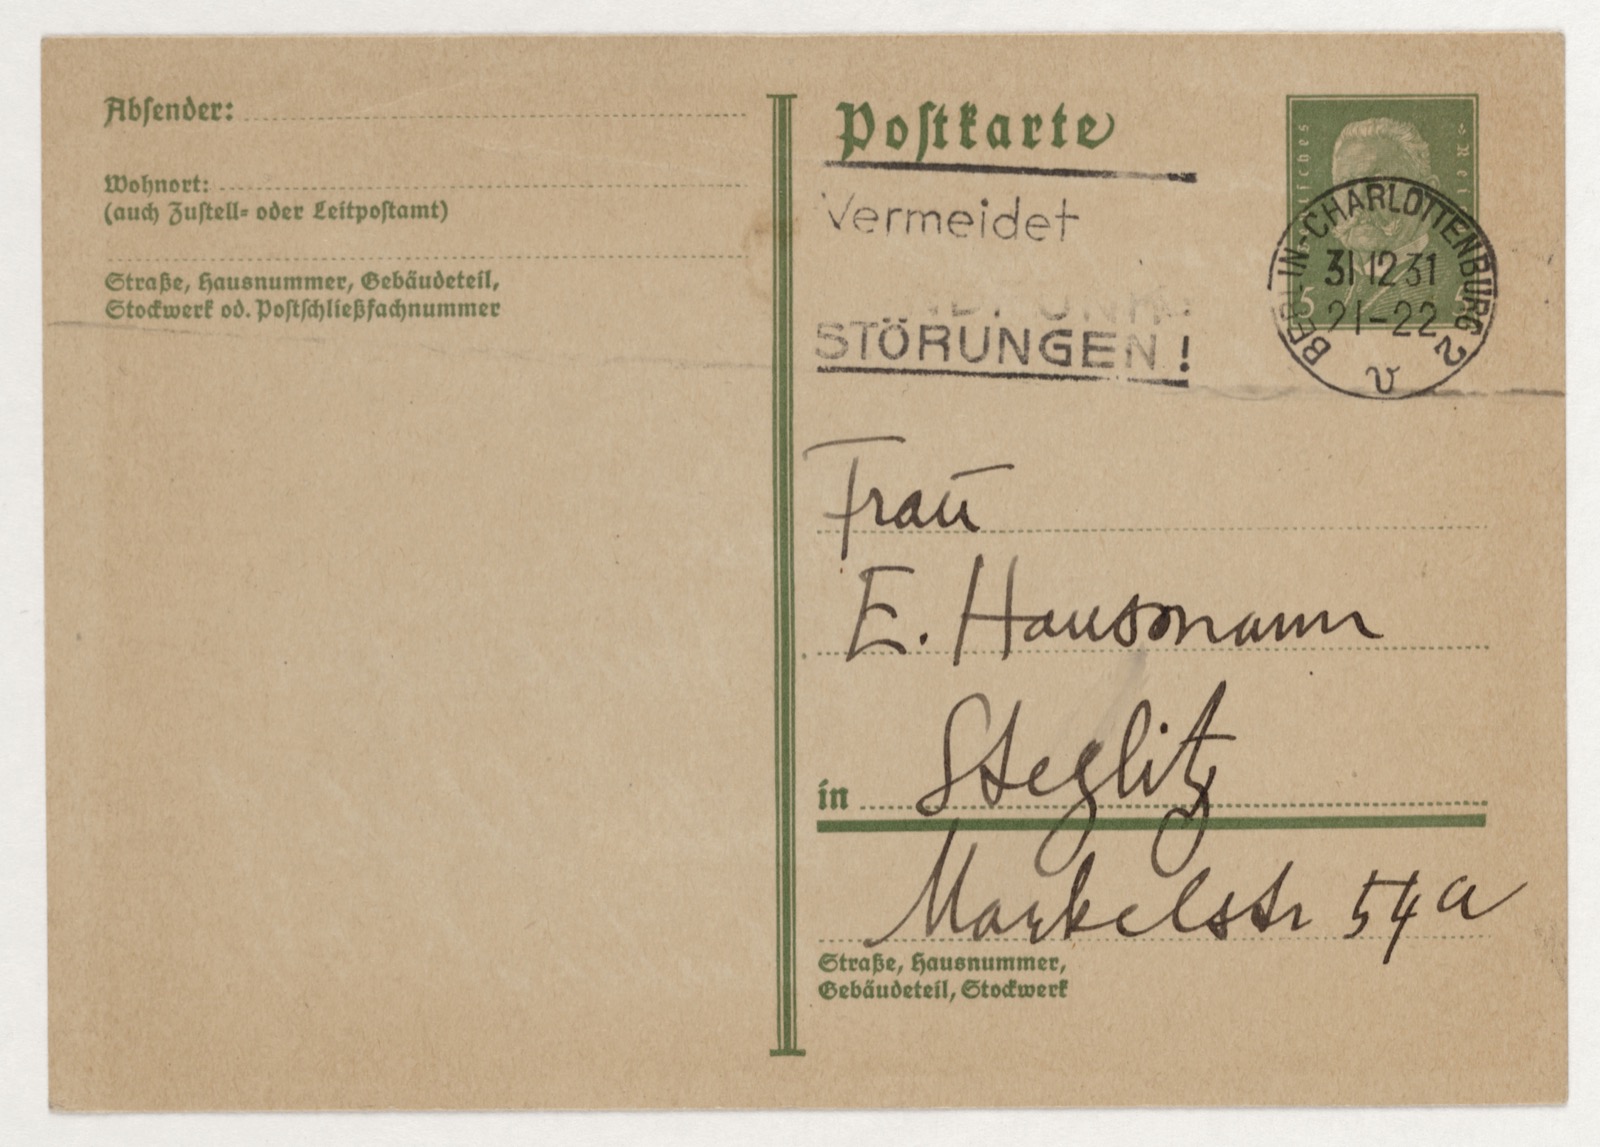 Absender:
Wohnort:
(auch Zustell- oder Leitpostamt)
Straße, Hausnummer, Gebäudeteil,
Stockwerk od. Postschließfachnummer
Postkarte
Vermeidet
STÖRUNGEN!
5
BERLIN-CHARLOTTENBURG 2
31 12 31
21-22
v
Frau
E. Hausmann
in Steglitz
Markelstr 54a
Straße, Hausnummer,
Gebäudeteil, Stockwerk